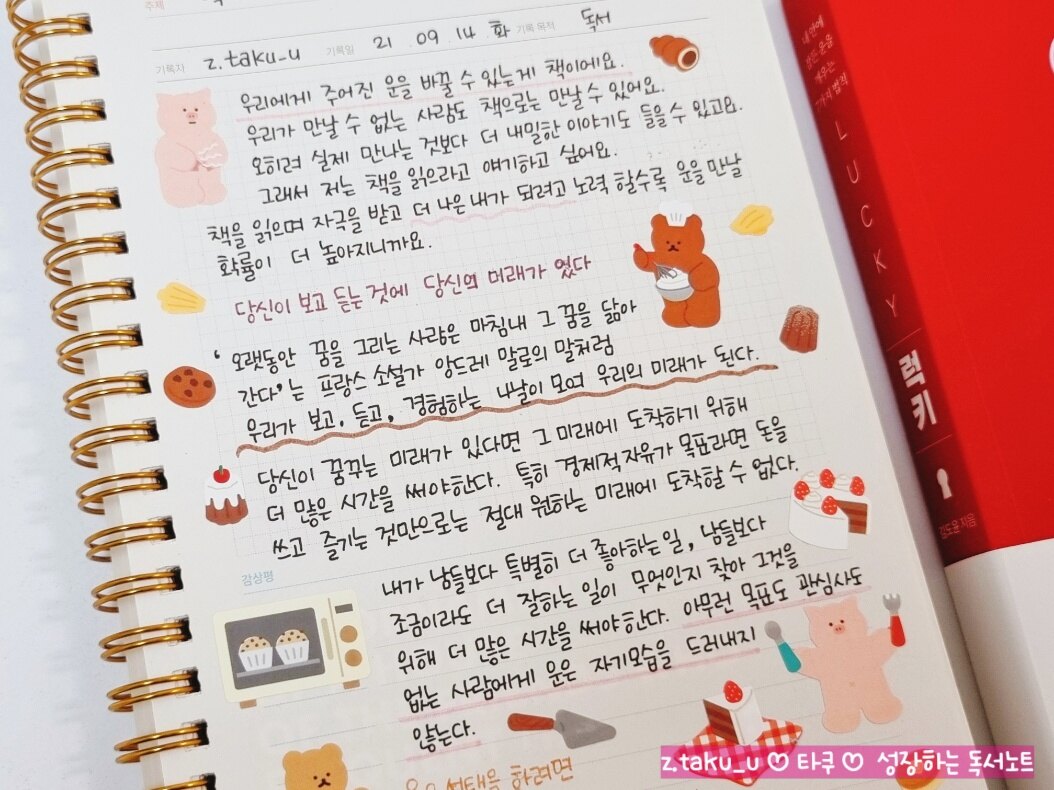 주제
기록자 z.taku_u 기록일 21.09.14.화 기록 목적 독서
우리에게 주어진 운을 바꿀 수 있는게 책이에요.
우리가 만날 수 없는 사람도 책으로는 만날 수 있어요.
오히려 실제 만나는 것보다 더 내밀한 이야기도 들을 수 있고요.
그래서 저는 책을 읽으라고 얘기하고 싶어요.
책을 읽으며 자극을 받고 더 나은 내가 되려고 노력 할수록 운을 만날
확률이 더 높아지니까요.
당신이 보고 듣는 것에 당신의 미래가 있다
‘오랫동안 꿈을 그리는 사람은 마침내 그 꿈을 닮아
간다’는 프랑스 소설가 앙드레 말로의 말처럼
우리가 보고, 듣고, 경험하는 나날이 모여 우리의 미래가 된다.
당신이 꿈꾸는 미래가 있다면 그 미래에 도착하기 위해
더 많은 시간을 써야한다. 특히 경제적 자유가 목표라면 돈을
쓰고 즐기는 것만으로는 절대 원하는 미래에 도착할 수 없다.
감상평
내가 남들보다 특별히 더 좋아하는 일, 남들보다
조금이라도 더 잘하는 일이 무엇인지 찾아 그것을
위해 더 많은 시간을 써야한다. 아무런 목표도 관심사도
없는 사람에게 운은 자기모습을 드러내지
않는다.
하려면
내 안에
잠든 운을
깨우는
7가지 법칙
LUCKY
럭키
김도윤 지음
z.taku_u ♡ 타쿠 ♡ 성장하는 독서노트